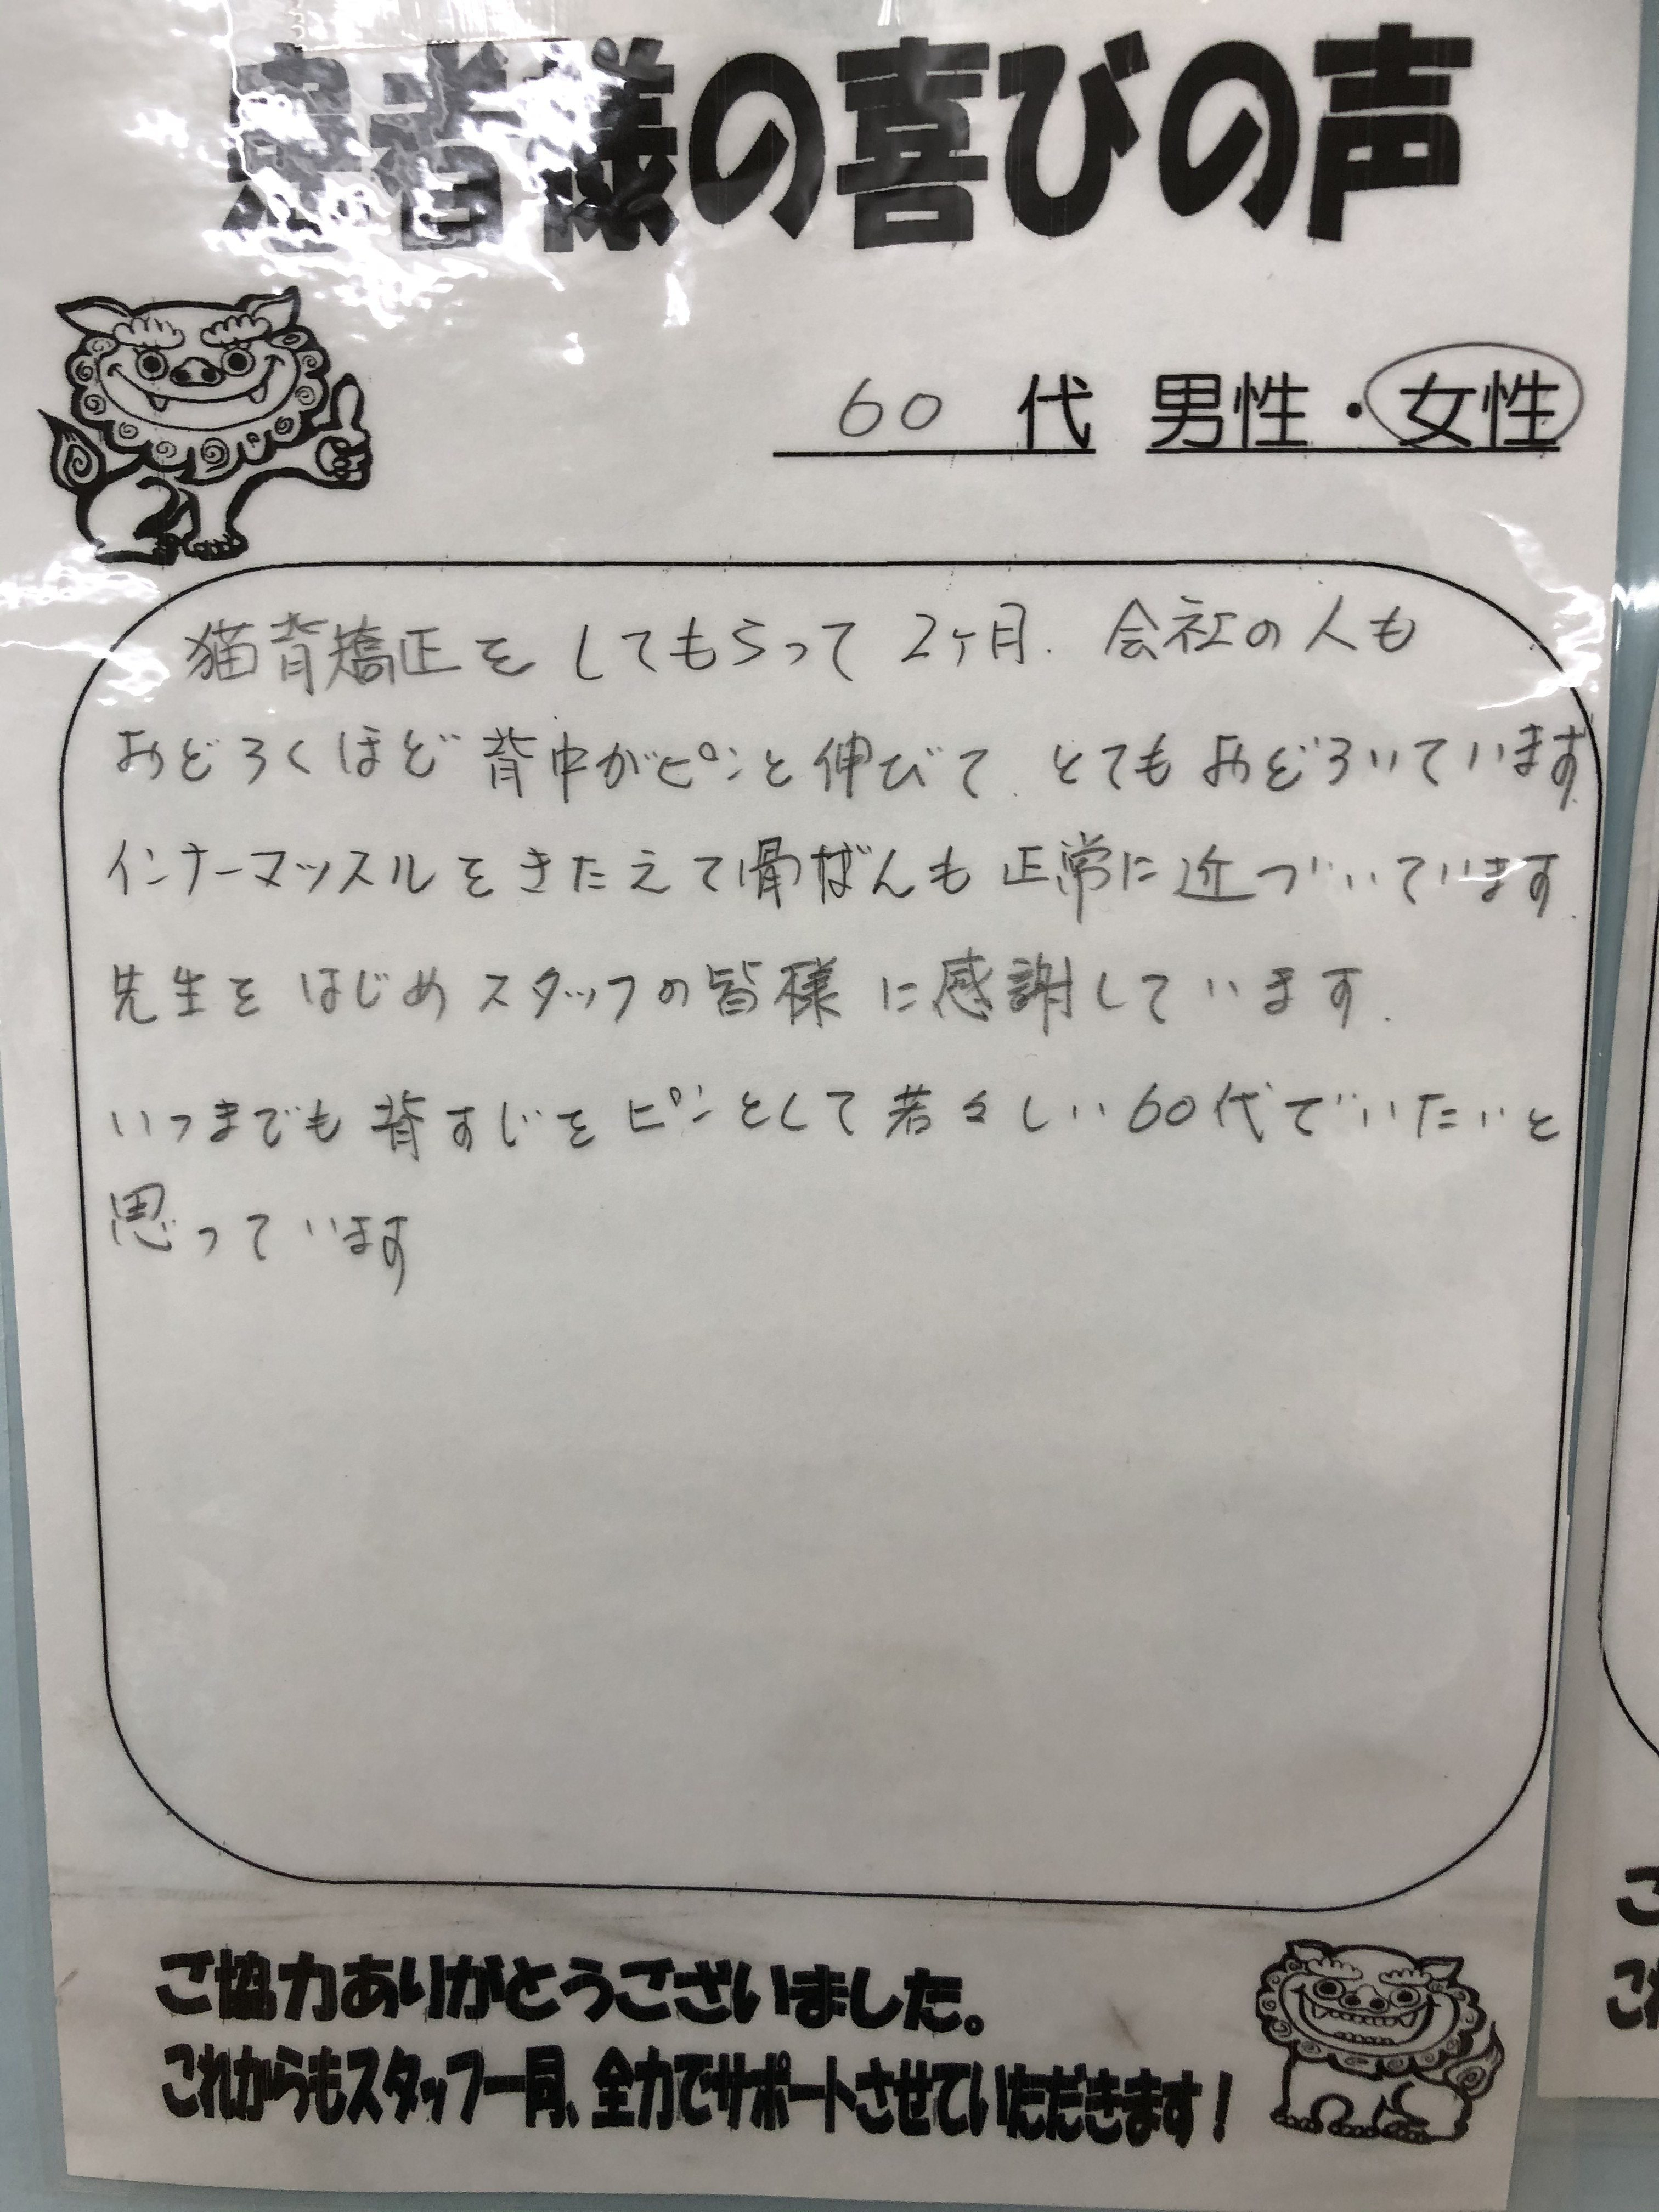 患者様の喜びの声
60 代 男性・女性
猫背矯正をしてもらって2ヶ月.会社の人も
おどろくほど背中がピンと伸びて.とてもおどろいています.
インナーマッスルをきたえて骨ばんも正常に近づいています.
先生をはじめスタッフの皆様に感謝しています.
いつまでも背すじをピンとして若々しい60代でいたいと
思っています
ご協力ありがとうございました。
これからもスタッフ一同、全力でサポートさせていただきます！